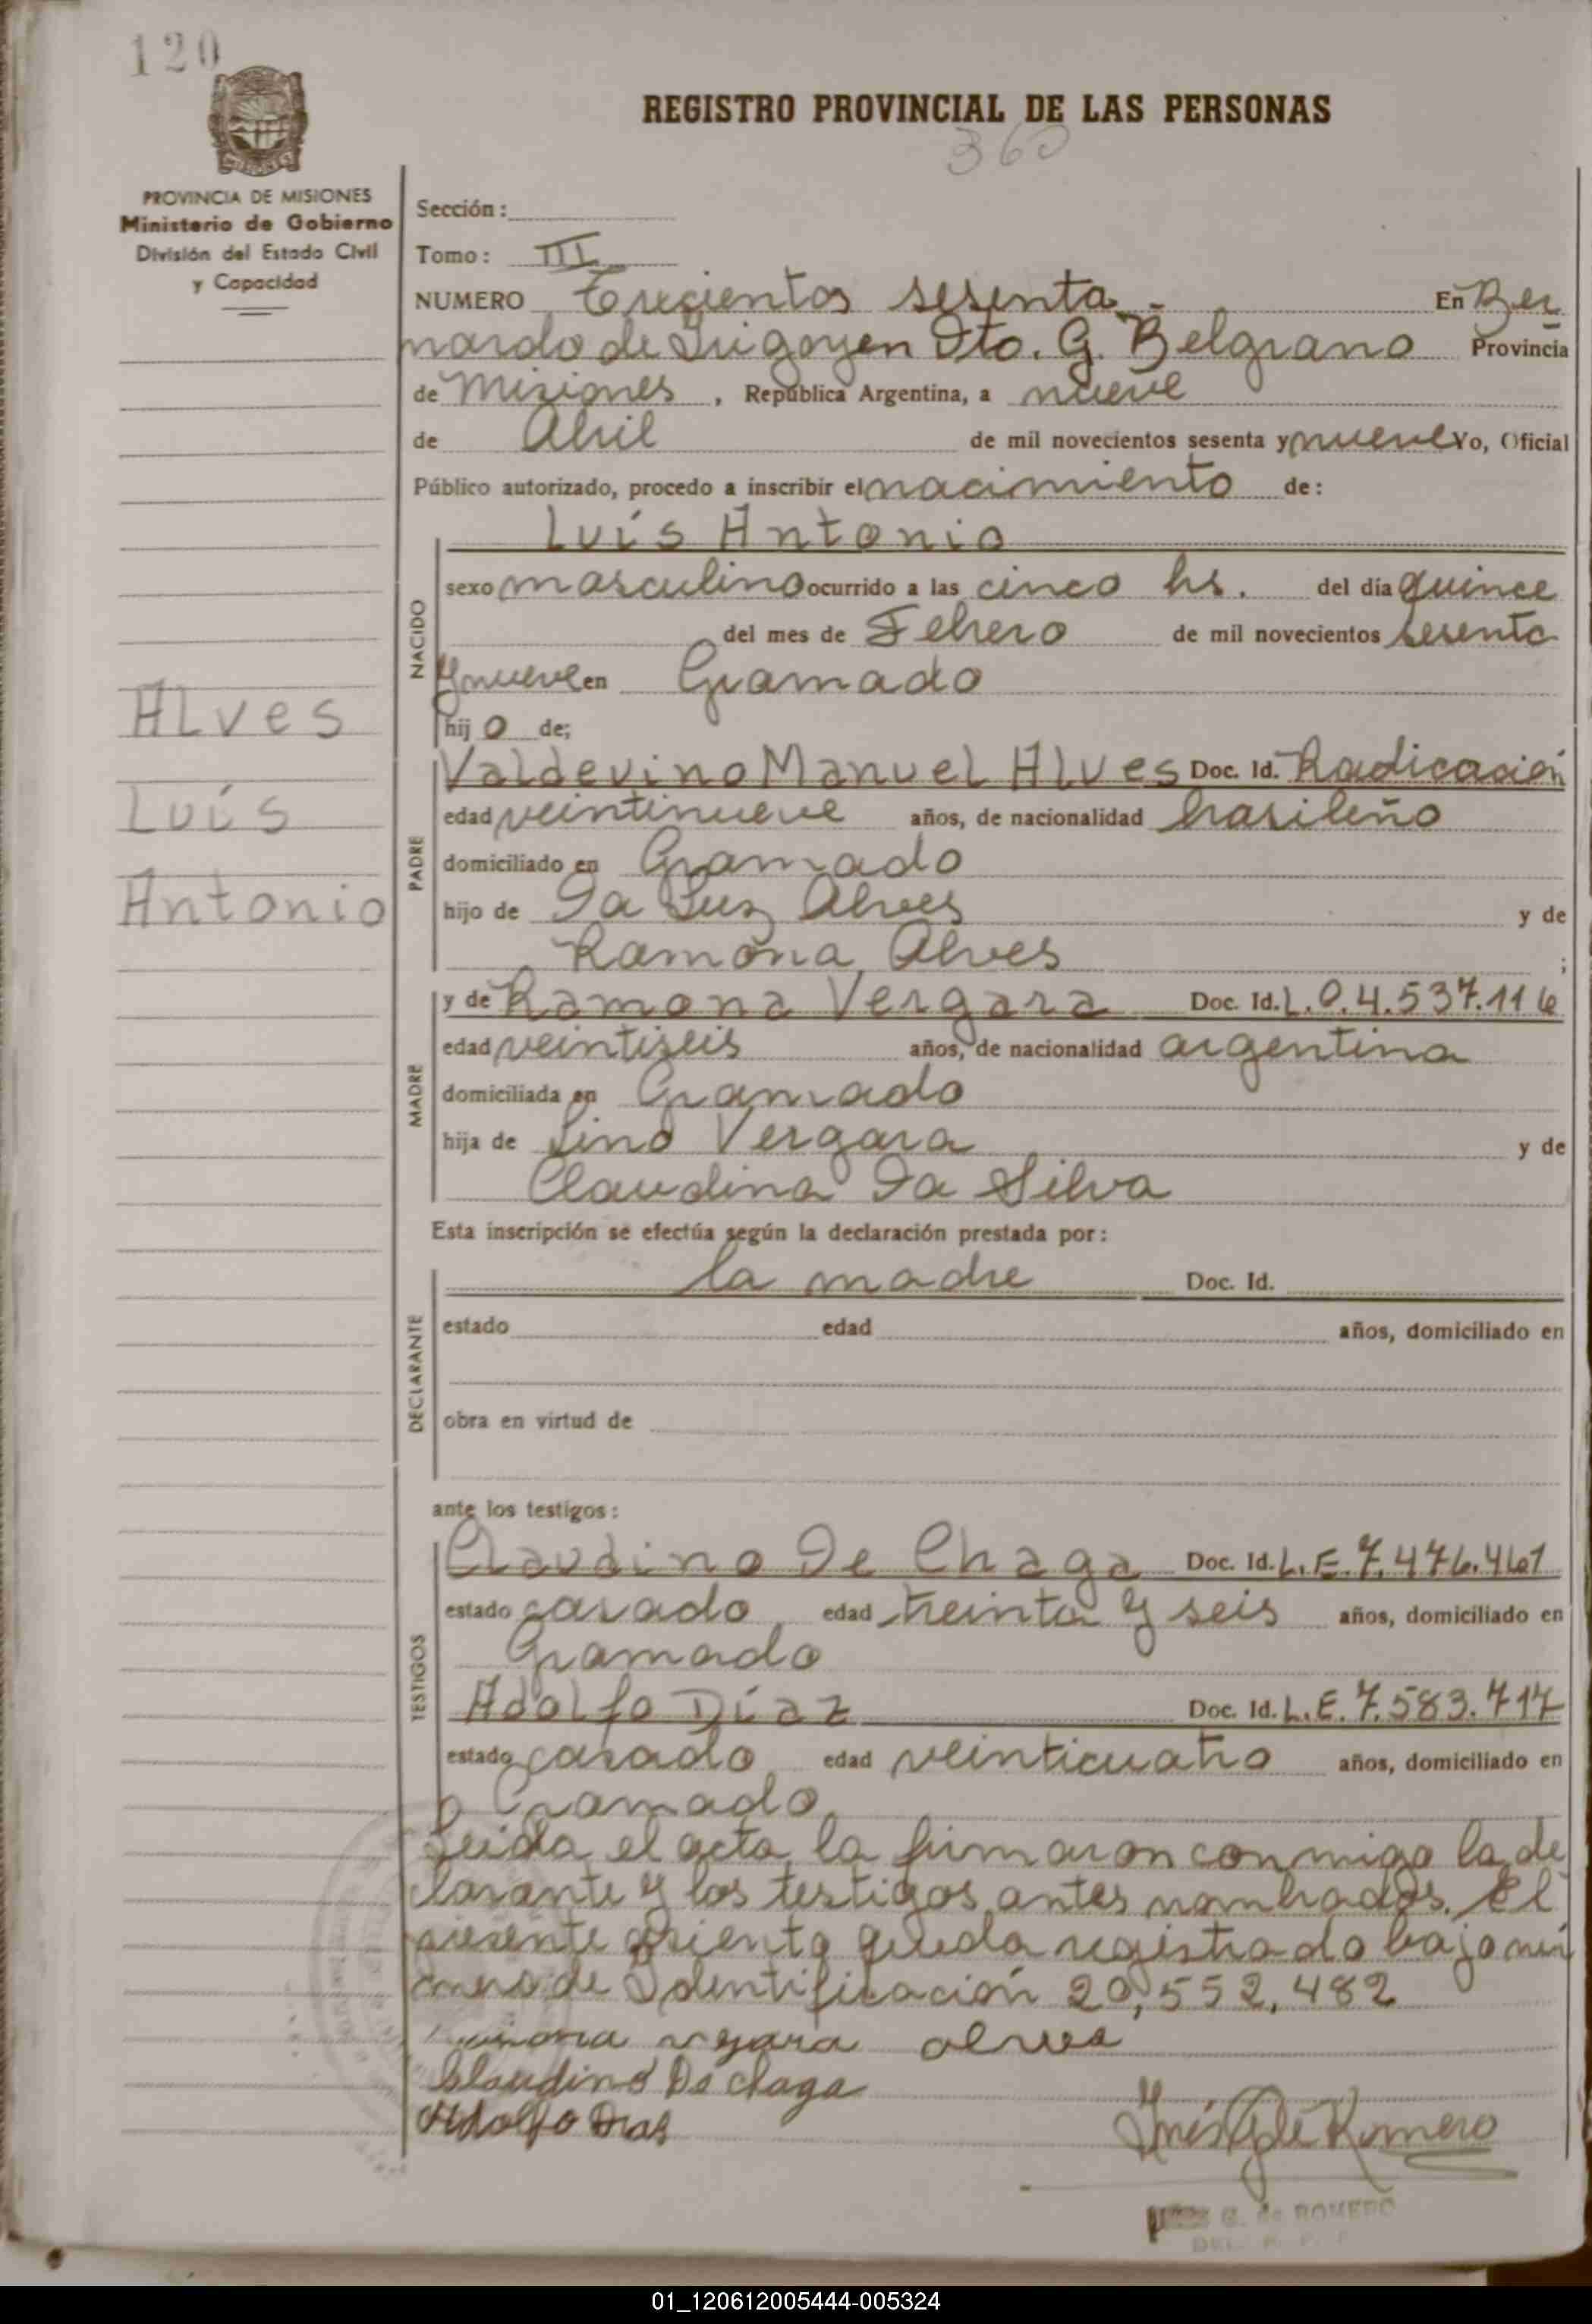 120
REGISTRO PROVINCIAL DE LAS PERSONAS
360
PROVINCIA DE MISIONES
Ministerio de Gobierno
División del Estado Civil
y Capacidad
Sección:
Tomo: III
NUMERO Trecientos sesenta.- En Ber
nardo de Irigoyen Dto. G. Belgrano Provincia
de Misiones, República Argentina, a nueve
de Abril de mil novecientos sesenta y nueve Yo, Oficial
Público autorizado, procedo a inscribir el nacimiento de:
Luís Antonio
NACIDO
sexo masculino ocurrido a las cinco hs. del día quince
del mes de Febrero de mil novecientos sesenta
y nueve en Gramado
hijo de;
ALves
Luís
Antonio
PADRE
Valdevino Manuel ALves Doc. Id. Radicación
edad veintinueve años, de nacionalidad brasileño
domiciliado en Gramado
hijo de Da Luz Alves y de
Ramona Alves ;
MADRE
y de Ramona Vergara Doc. Id. L.C.4.537.116
edad veintiseis años, de nacionalidad argentina
domiciliada en Gramado
hija de Lino Vergara y de
Claudina Da Silva
Esta inscripción se efectúa según la declaración prestada por:
DECLARANTE
la madre Doc. Id.
estado edad años, domiciliado en
obra en virtud de
ante los testigos:
TESTIGOS
Claudino De Chaga Doc. Id. L.E.7.476.461
estado casado edad treinta y seis años, domiciliado en
Gramado
Adolfo Díaz Doc. Id. L.E.7.583.717
estado casado edad veinticuatro años, domiciliado en
Gramado
Leida el acta, la firmaron conmigo la de
clarante y los testigos antes nombrados. El
presente asiento queda registrado bajo nú
mero de Identificación 20,552,482
Claudino De chaga
Adolfo Dias
Inés G de Romero
G. de ROMERO
01_120612005444-005324